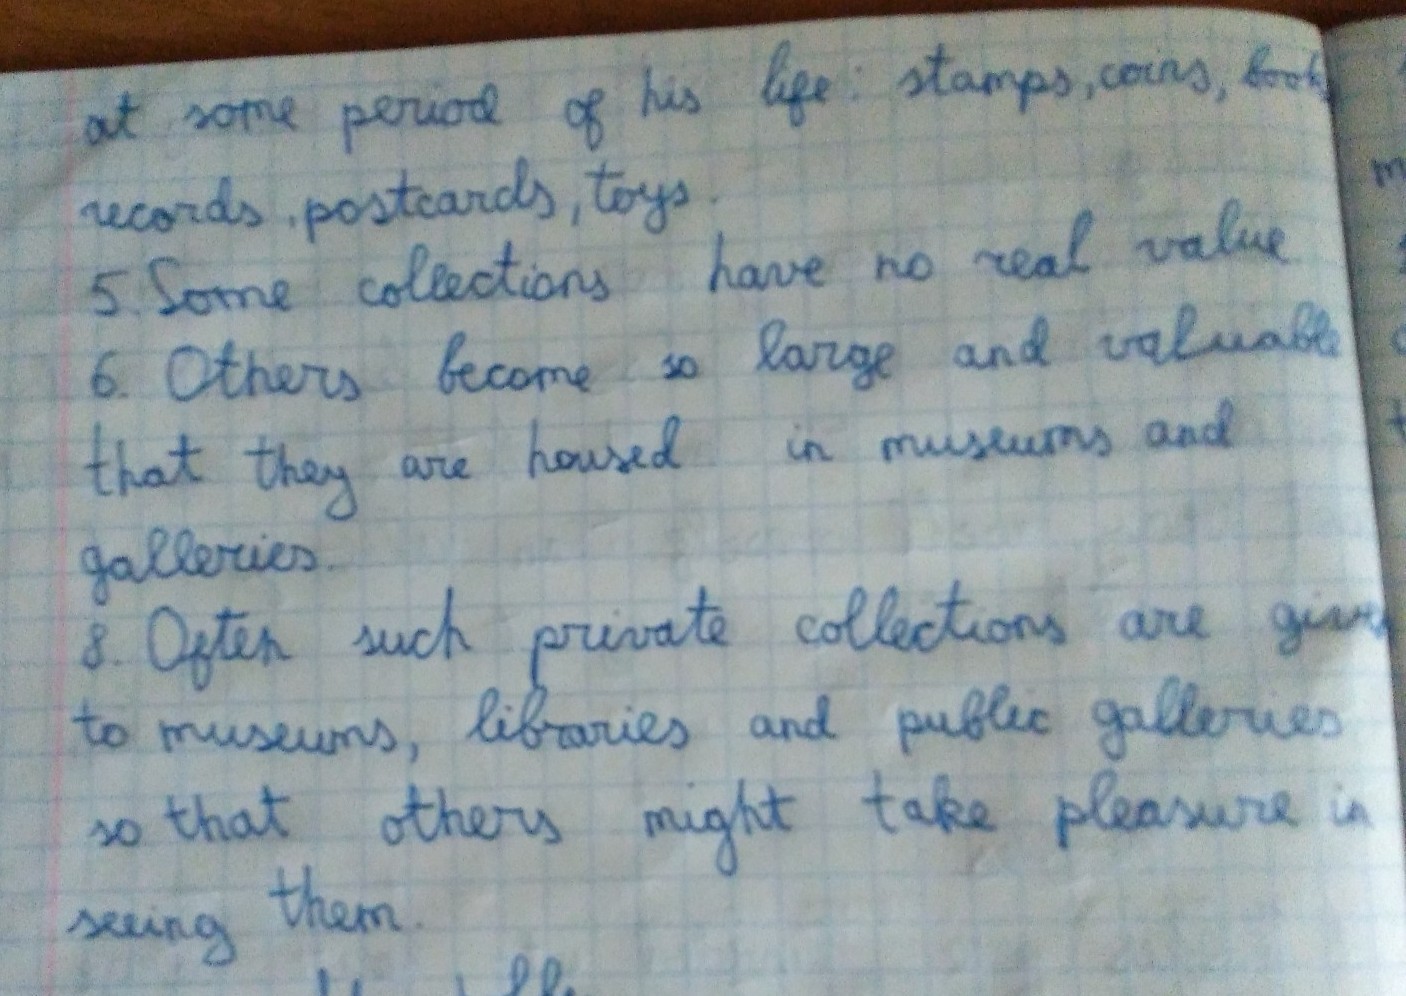 at some period of his life: stamps, coins, books
records, postcards, toys.
5. Some collections have no real value
6. Others become so large and valuable
that they are housed in museums and
galleries.
8. Often such private collections are given
to museums, libraries and public galleries
so that others might take pleasure in
seeing them.